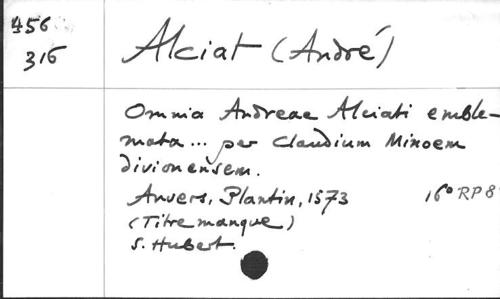 456
316
Alciat (André)
Omnia Andreae Alciati emble-
mata... per Claudium Minoem
divionensem.
Anvers, Plantin, 1573 16° RP 8
(Titre manque)
S. Hubert.